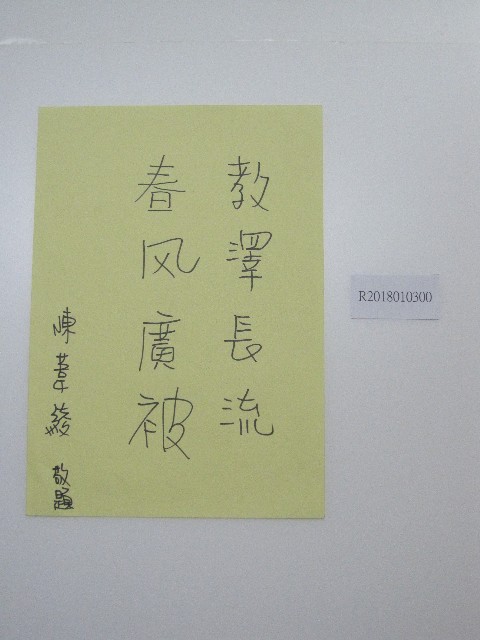 教澤長流
春风廣被
陳葦綾 敬題
R2018010300